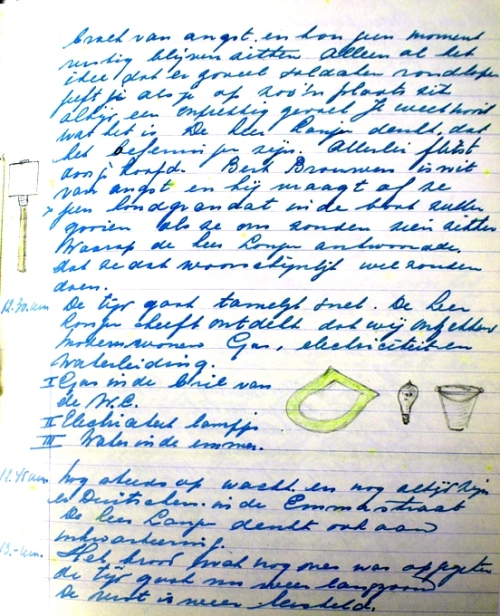 van angst en kon geen moment
rustig blijven zitten Alleen al het
idee dat er zoveel soldaten rondlopen
geeft je als je op zoo'n plaats zit
altijd een gevoel Je weet nooit
wat het is De heer denkt, dat
het oefeningen zijn. Allerlei flitst
door je hoofd. Bert Brouwers is wit
van angst en hij vraagt of ze
geen handgranaat in de boot zullen
gooien als ze ons zouden zien zitten
Waarop de heer antwoordde
dat ze dat waarschijnlijk wel zouden
doen.
12.30. uur De tijd gaat tamelijk snel. De heer
heeft ontdekt dat wij
Gas, electriciteit en
Waterleiding.
I Gas in de bril van
de W.C.
II Electriciteit lampje
III Water in de emmer.
12.45 uur Nog steeds op wacht en nog altijd zijn
er Duitschers in de Emmastraat
De heer denkt ook aan
inkwartiering.
13.- uur. Het brood wat nog over was opgegeten
de tijd gaat nu weer langzaam
De rust is weer